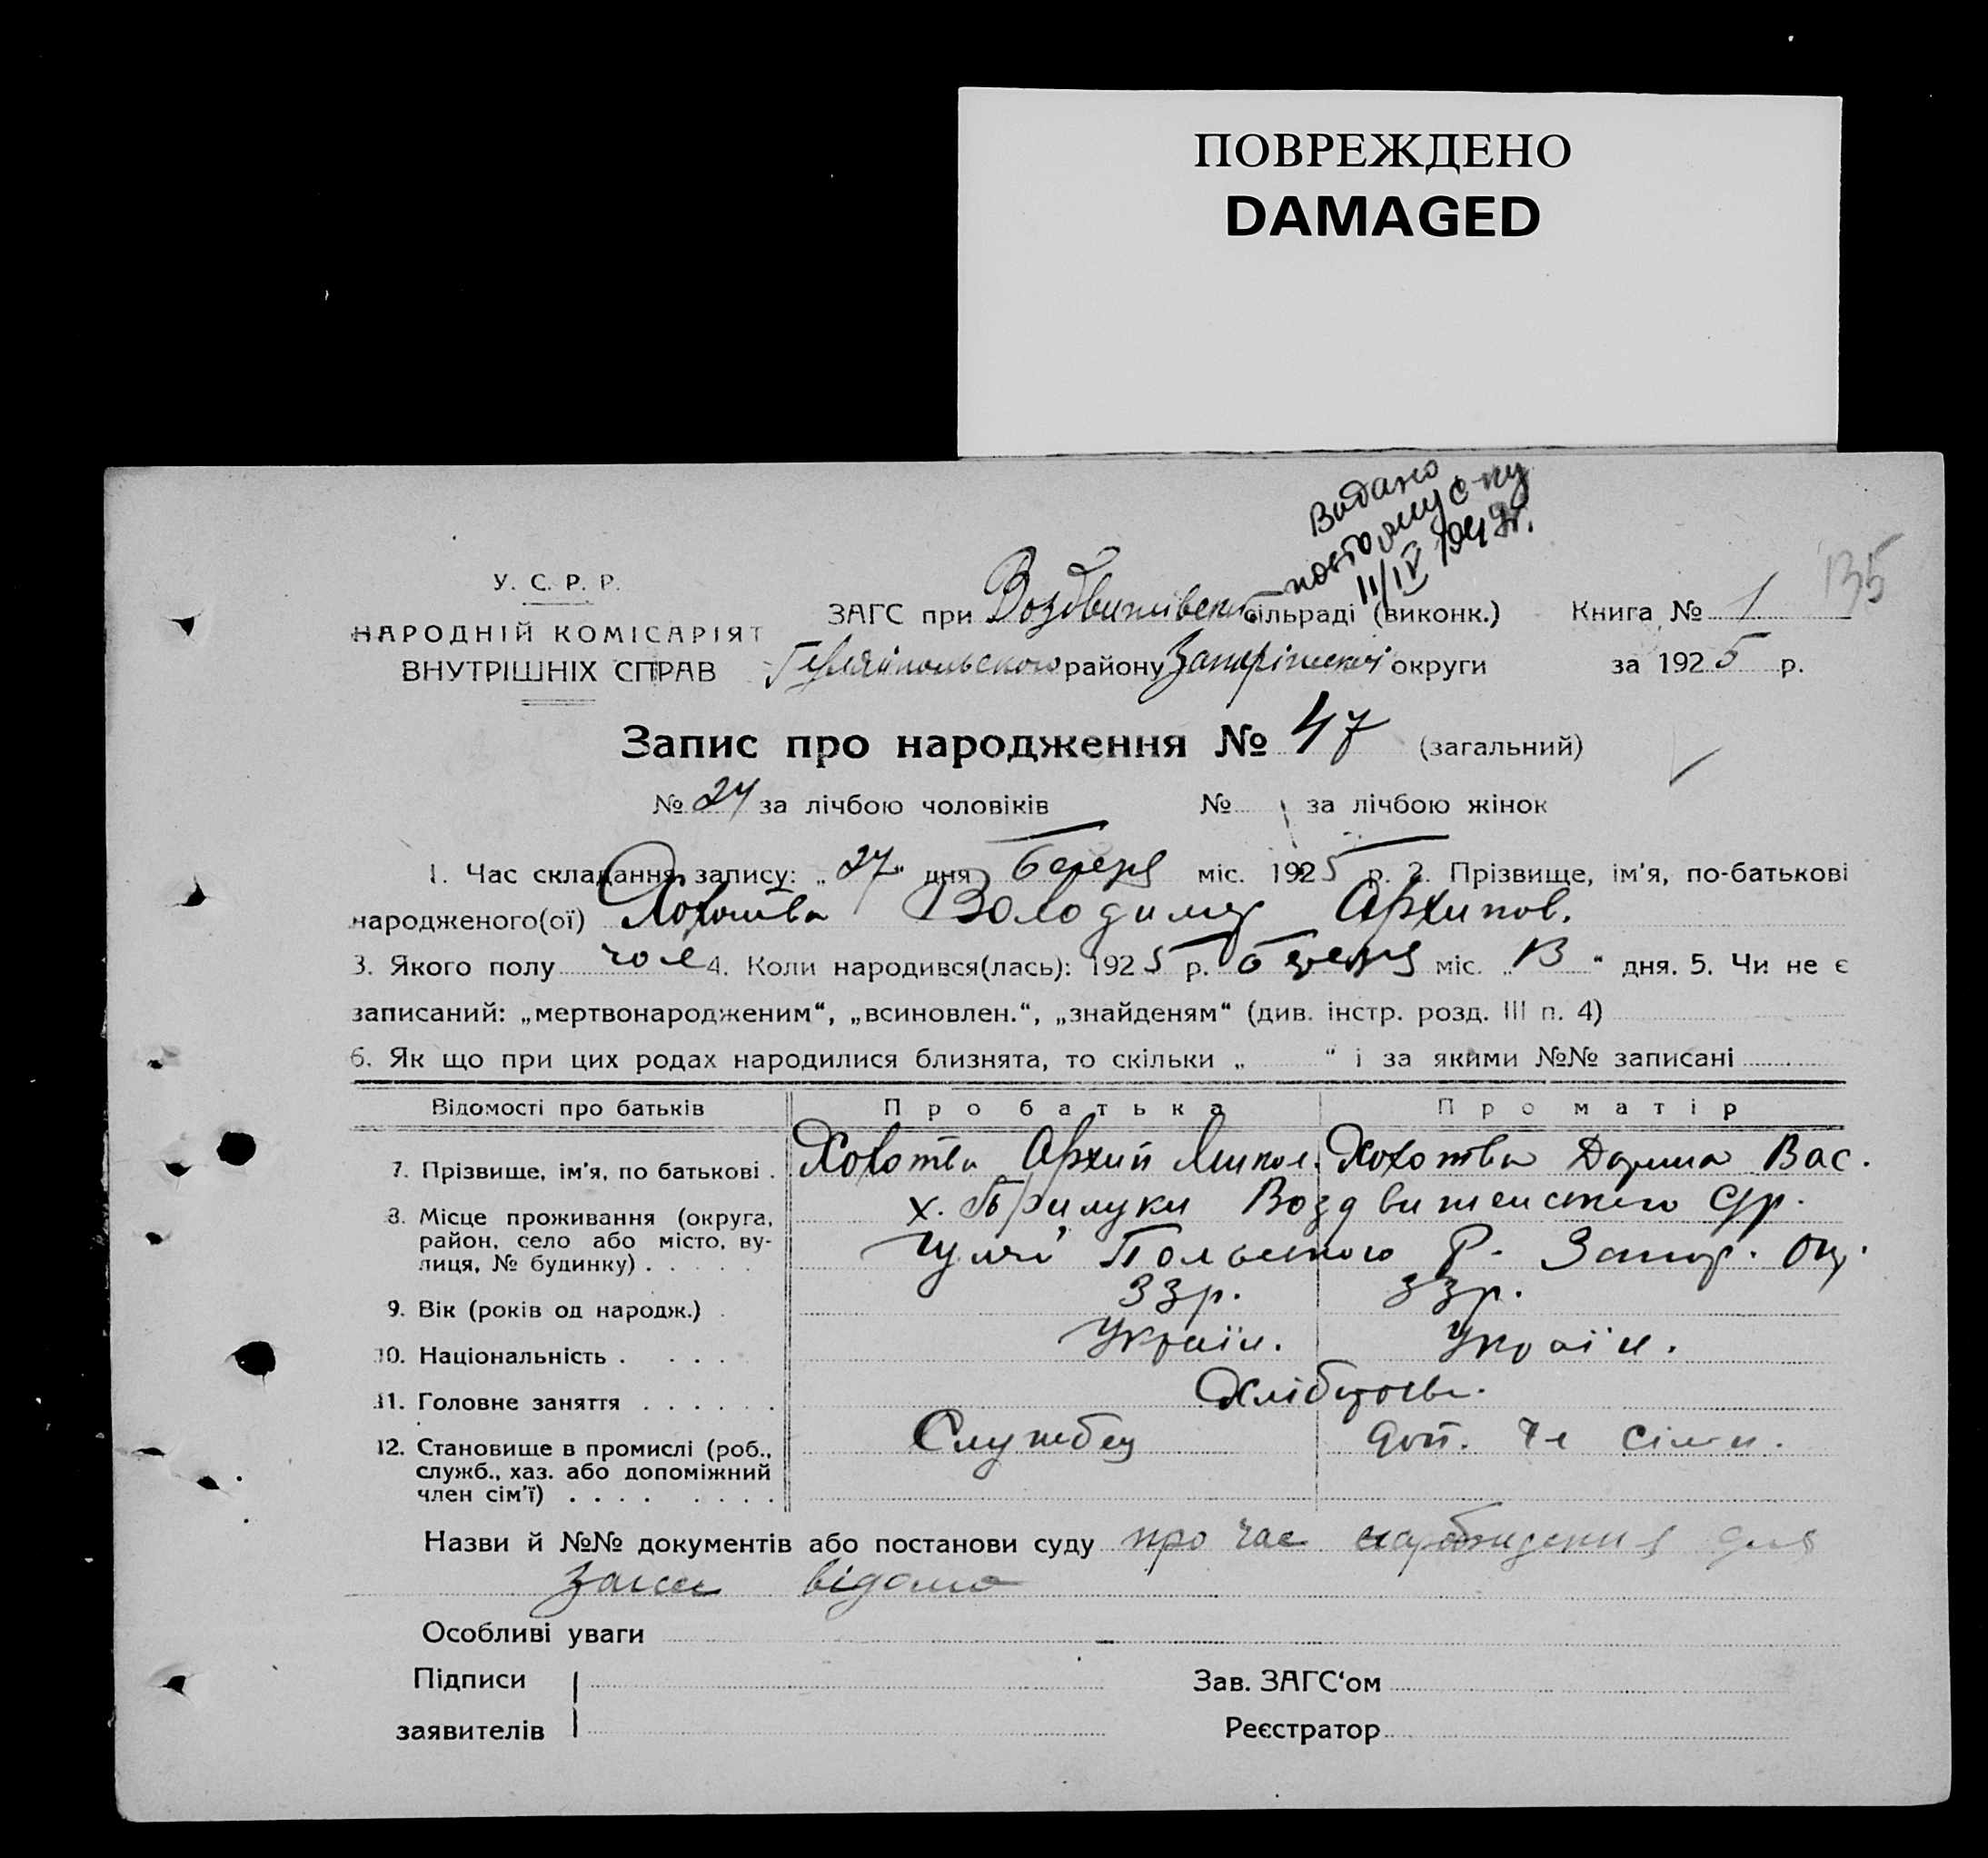 ПОВРЕЖДЕНО
DAMAGED
Видано
повторну с-ку
11/IV 1949г.
135
У. С. Р. Р.
НАРОДНІЙ КОМІСАРІЯТ
ВНУТРІШНІХ СПРАВ
ЗАГС при Воздвижівській сільраді (виконк.) Книга № 1
Гуляйпольського району Запоріжської округи за 1925 р.
Запис про народження № 47 (загальний)
№ 24 за лічбою чоловіків № за лічбою жінок
1. Час складання запису: „27“ дня березня міс. 1925 р. 2. Прізвище, ім’я, по-батькові
народженого(ої) Хохотва Володимир Архипов.
3. Якого полу чол 4. Коли народився(лась): 1925 р. березня міс. „13“ дня. 5. Чи не є
записаний: „мертвонародженим“, „всиновлен.“, „знайденям“ (див. інстр. розд. III п. 4)
6. Як що при цих родах народилися близнята, то скільки „ “ і за якими №№ записані
Відомості про батьків Про батька Про матір
7. Прізвище, ім’я, по батькові . Хохотва Архип Микол. Хохотва Дарина Вас.
8. Місце проживання (округа, район, село або місто, вулиця, № будинку) . . . . . х. Прилуки Воздвиженського с/р.
Гуляй Польського Р. Запор. Окр.
9. Вік (років од народж.) . 33р. 33р.
10. Національність . . . . Україн. Україн.
11. Головне заняття . . . . . . Хлібороби.
12. Становище в промислі (роб., Службец доп. чл сім'и.
служб., хаз. або допоміжний
член сім’ї) . . . . . . . .
Назви й №№ документів або постанови суду про час народження для
загсу відомо
Особливі уваги
Підписи Зав. ЗАГС‘ом
заявителів Реєстратор